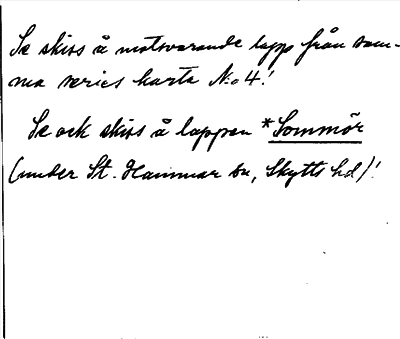 Se skiss å motsvarande lapp från sam-
ma series karta N:o 4!
Se ock skiss å lappen *Sommör
(under St. Hammar bn, Skytts hd)!